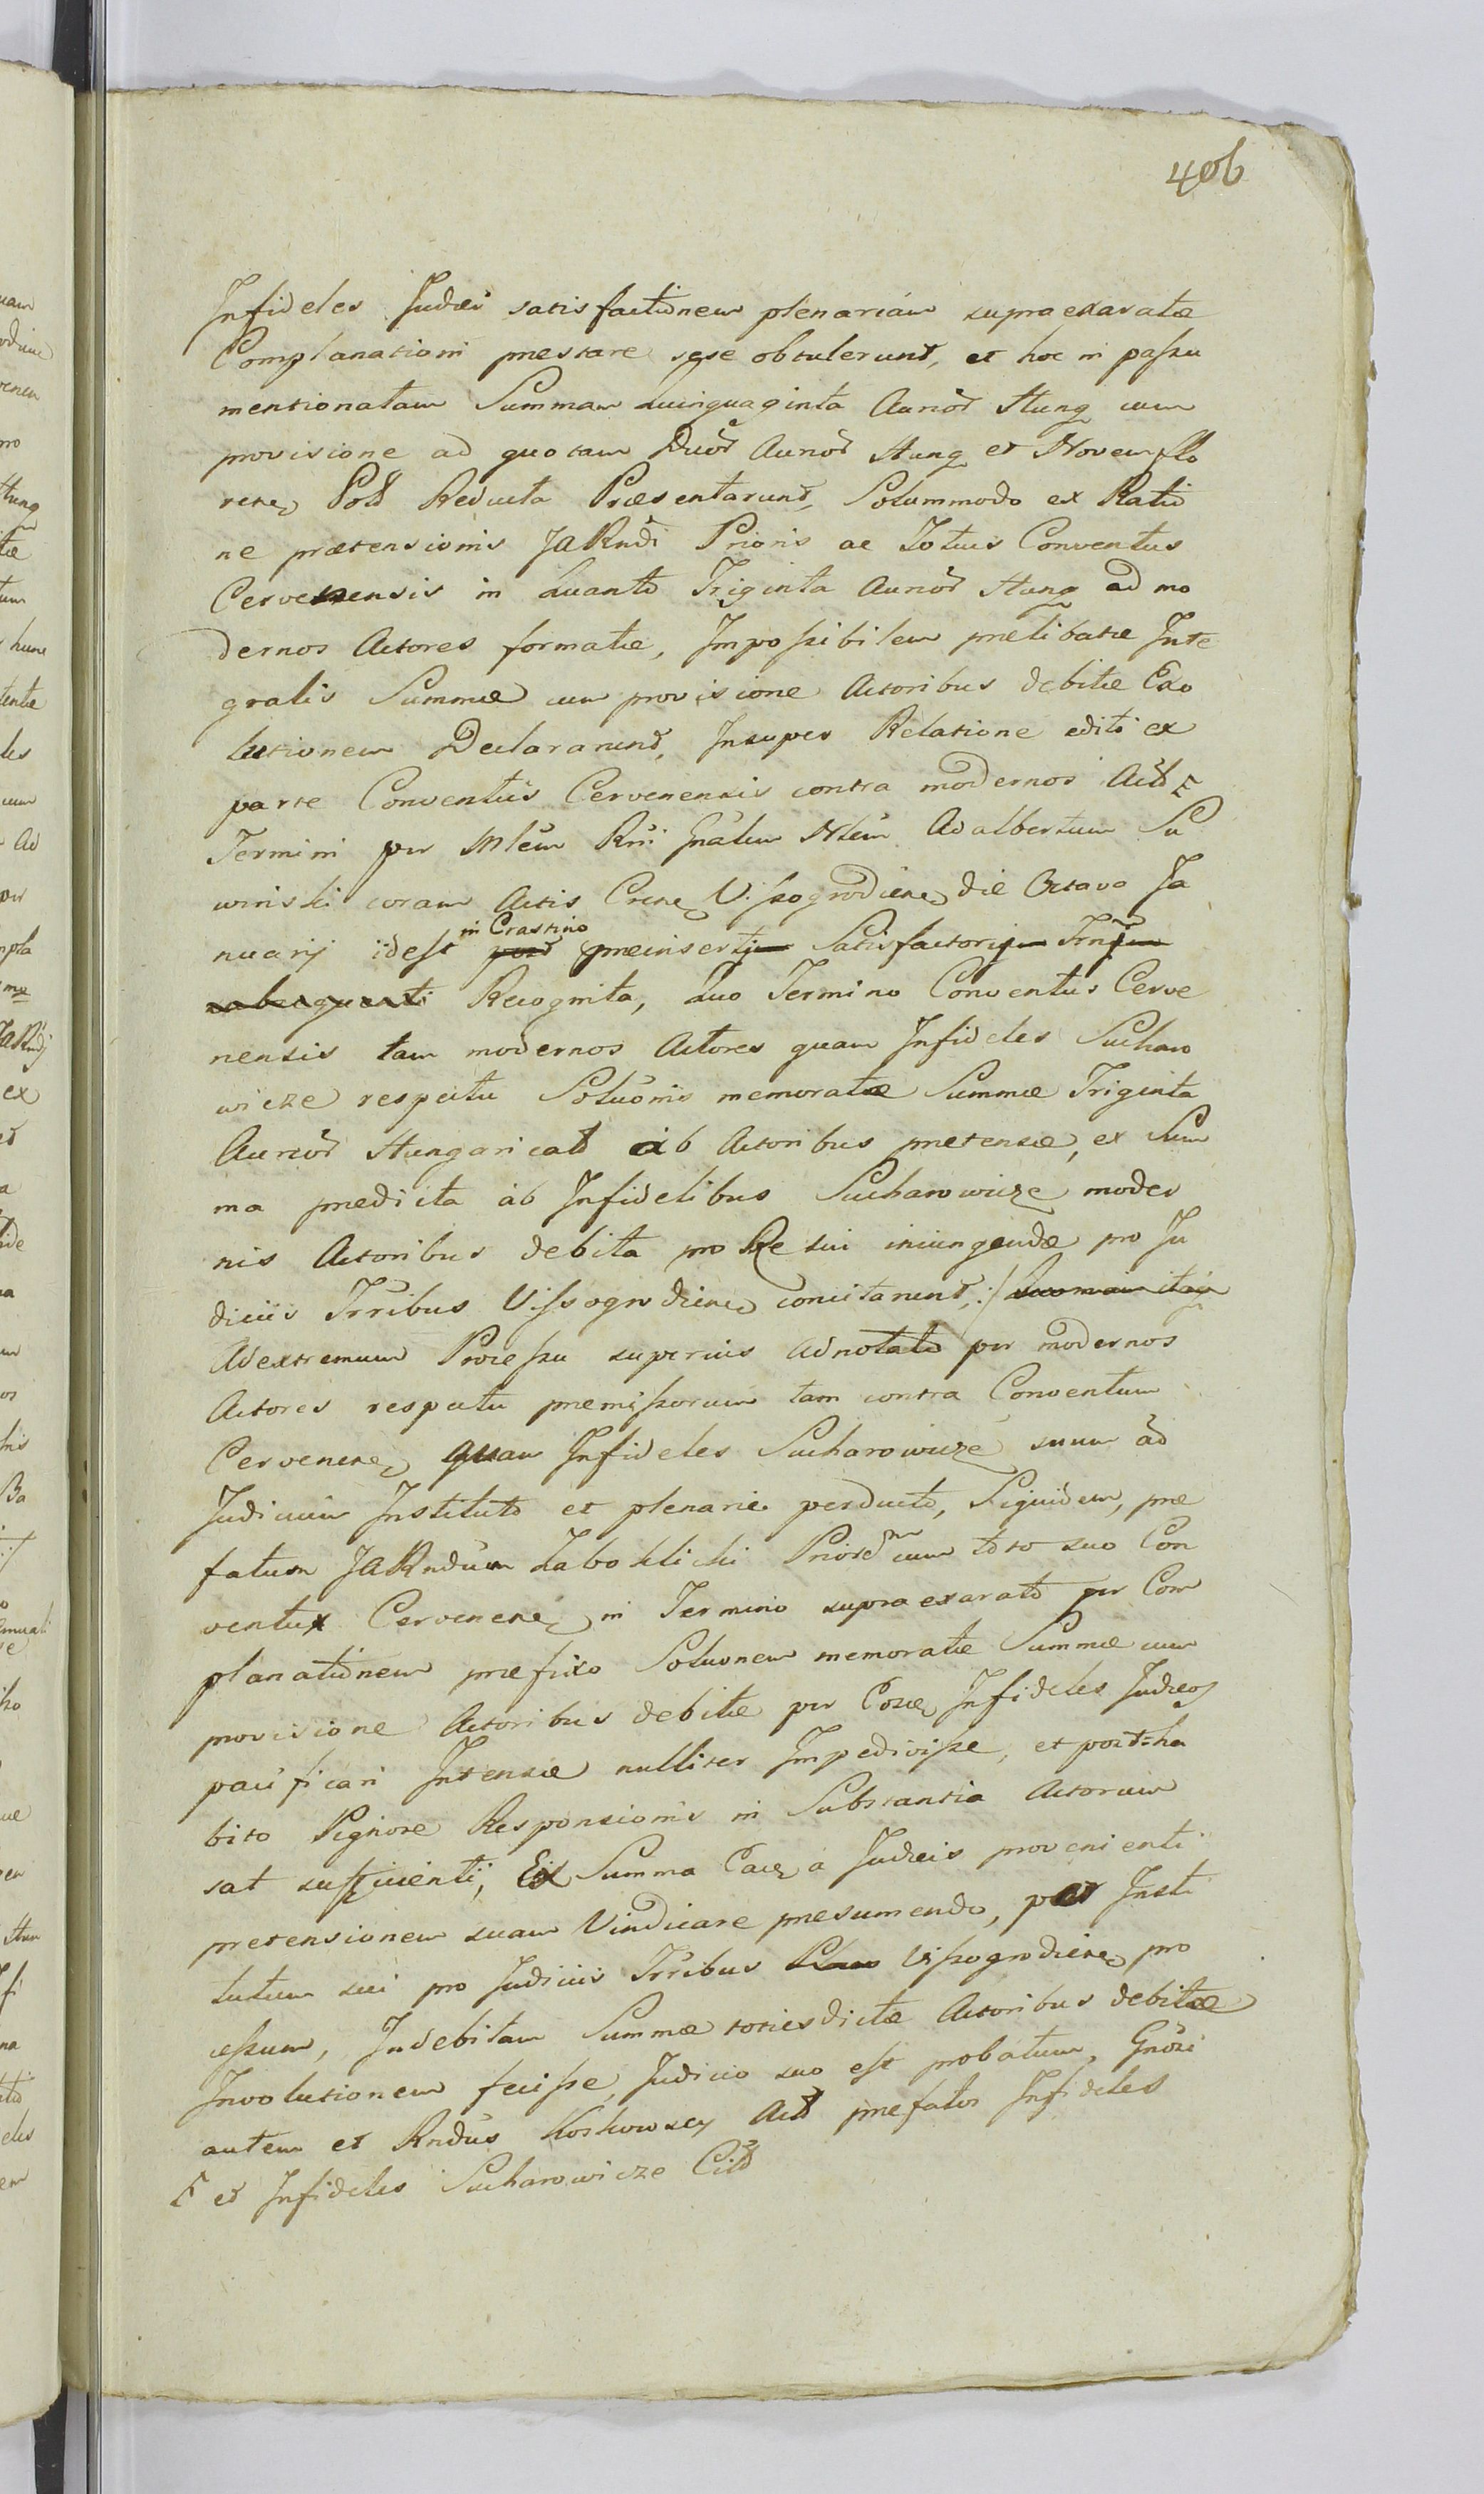 406
Infideles Judæi satisfactionem plenariam supraexaratæ
Complanationi prestare sese obtulerunt, et hoc in passu
mentionatam Summam Quinquaginta Auror Hung cum
provisione ad quotam Duor Auror Hung et Novem flo
rene Pold Reducta Præsentarunt, Solummodo ex Ratio
ne prætensionis JARndi Prioris ac Totius Conventus
Cervenensis in Quanto Triginta Auror Hung ad mo
dernos Actores formatæ, Impossibilem prelibatæ Inte
gralis Summæ cum provisione Actoribus debitæ Exo
lutionem Declararunt, Insuper Relatione editi ex
parte Conventus Cervenensis contra modernos Act
Termini per Mlem Rni Gnalem Nlem Adalbertum Su
winski coram Actis Crene Vissogrodiene die Octava Ja
nuarij idest in Crastino preinserti Satisfactorij
Recognita, Quo Termino Conventus Cerve
nensis tam modernos Actores quam Infideles Sucharo
wicze respectu Soluonis memoratæ Summæ Triginta
Auror Hungarical ab Actoribus pretensæ, ex Sum
ma predicta ab Infidelibus Sucharowicze moder
nis Actoribus debita pro Re sui iniungendæ pro Ju
diciis Trribus Vissogrodiene concitarunt,
Adextremum Processu superius adnotato per modernos
Actores respectu premissorum tam contra Conventum
Cervenene quam Infideles Sucharowicze suum ad
Judicium Instituto et plenarie perducto, Siquidem, præ
fatum JARndum Zaboklicki Priorem cum toto suo Con
ventu Cervenene in Termino supraexarato per Com
planationem præfixo Soluonem memoratæ Summæ cum
provisione Actoribus debitæ per Infideles Judæos
pacificari Intensæ nulliter Impedivisse, et post ha
bito Pignore Responsionis in Substantia Actorum
sat sufficienti, Ex Summa a Judæis provenienti
pretensionem suam Vindicare presumendo, per Insti
tutum sui pro Judiciis Trribus Vissogrodiene pro
cessum, Indebitam Summæ totiesdictæ Actoribus debitæ
Involutionem fecisse, Judicio suo est probatum, Gnosi
autem et Rndus Koskowscy Act prefatos Infideles
et Infideles Sucharowicze Cit